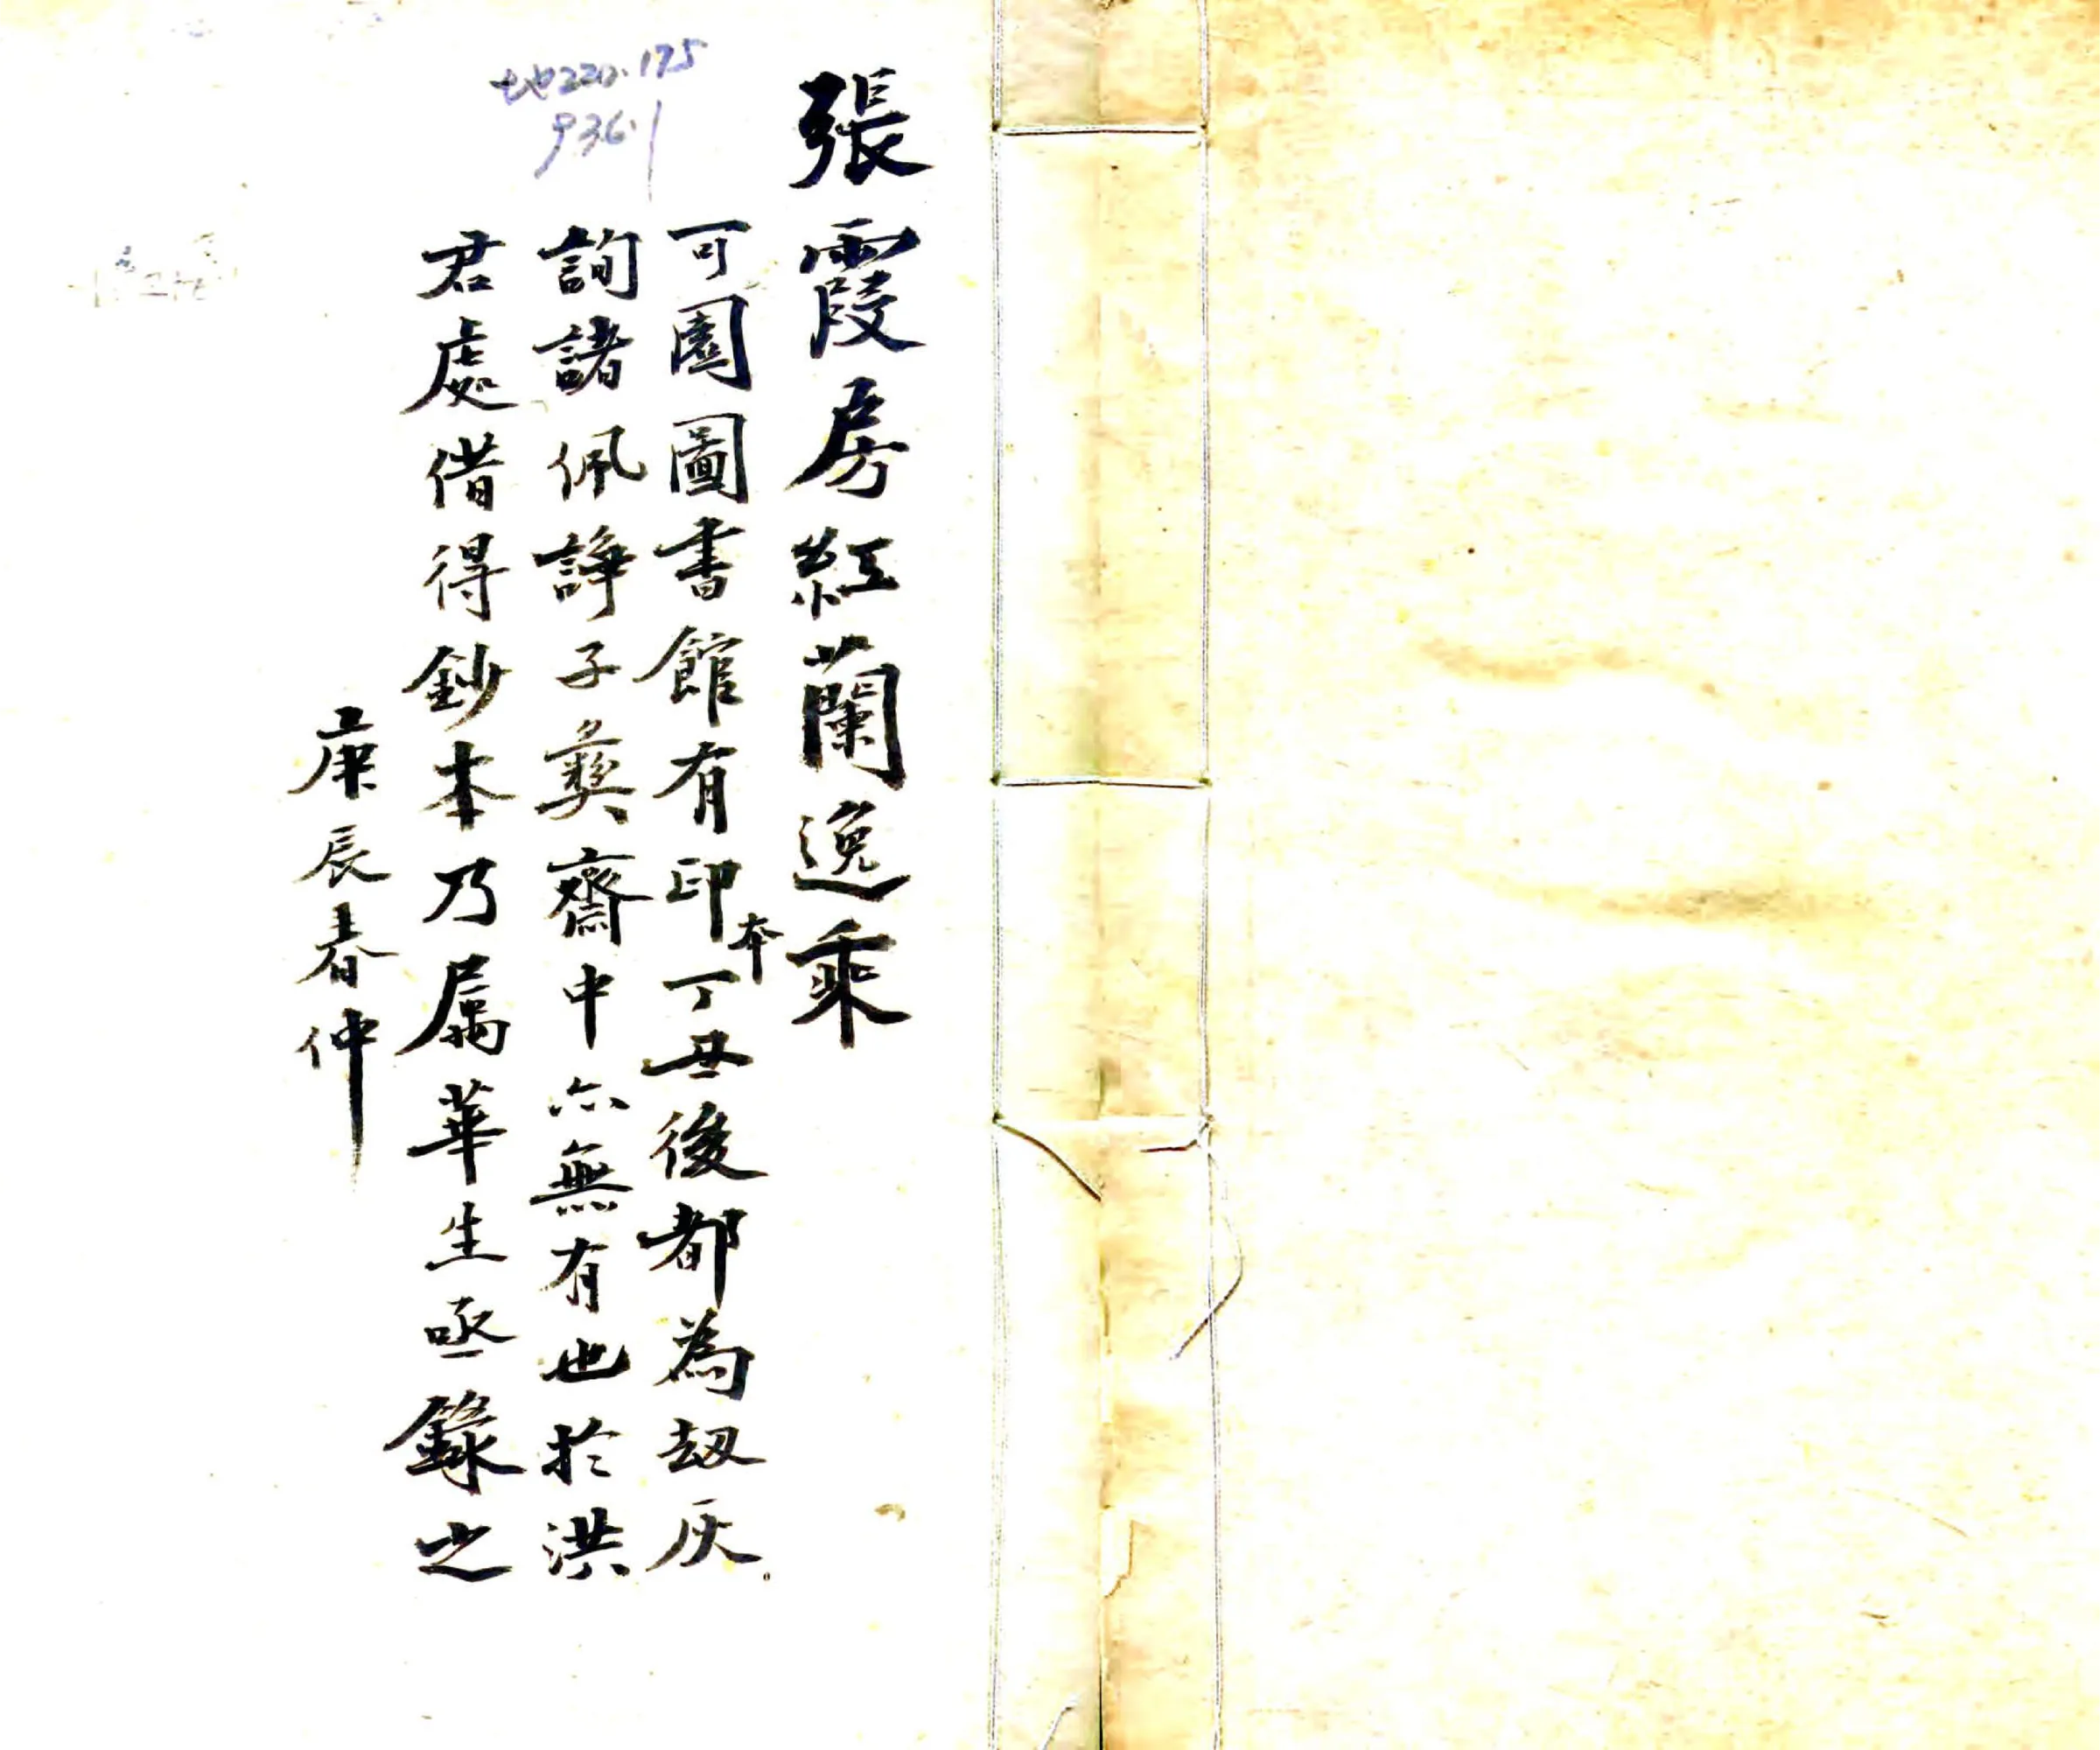 張霞房紅蘭逸乘
可園圖書館有印本丁丑後都為刼灰
詢諸佩諍子彝齋中亦無有也於洪
君處借得鈔本乃屬華生亟錄之
庚辰春仲
地220.175
936.1